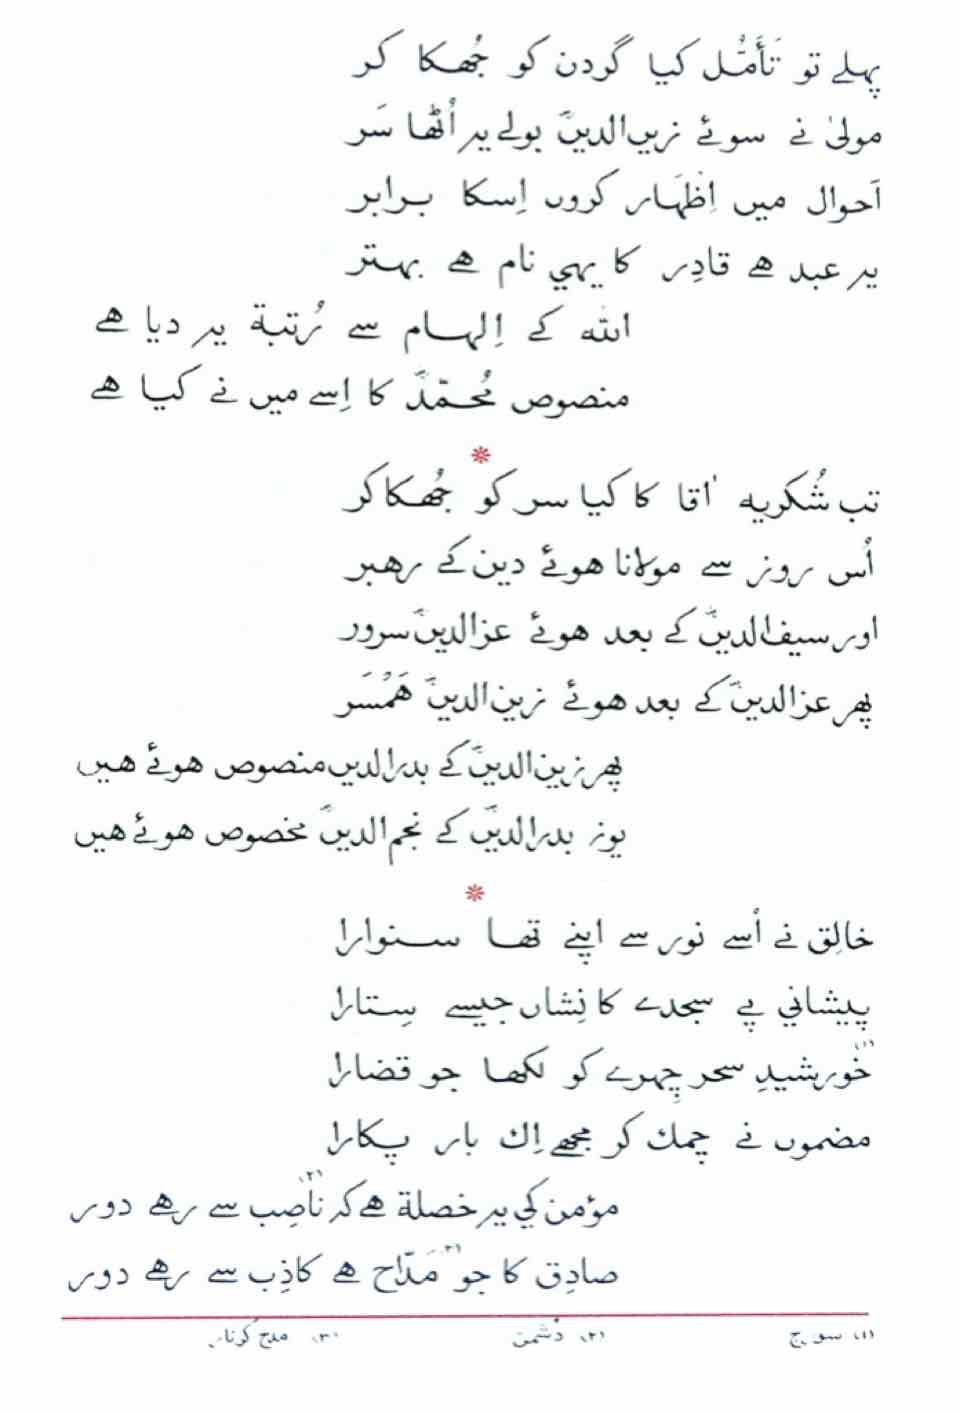 پہلے تو تَأَمُّل کیا گردن کو جُھکا کر
مولیٰ نے سوئے زین الدینؓ بولے یہ اُٹھا سَر
اَحوال میں اِظہَار کروں اِسکا برابر
یہ عبد ھے قادِر کا یہي نام ھے بہتر
الله کے اِلہام سے رُتبة یہ دیا ھے
منصوص مُحمّدؐ کا اِسے میں نے کیا ھے
*
تب شُکریہ اٰقا کا کیا سر کو جُھکا کر
اُس روز سے مولانا ھوئے دین کے رھبر
اور سیف الدینؓ کے بعد ھوئے عز الدینؓ سرور
پھر عز الدینؓ کے بعد ھوئے زین الدینؓ ھَمُسَر
پھر زین الدینؓ کے بدر الدین منصوص ھوئے ھیں
یوں بدر الدینؓ کے نجم الدینؓ مخصوص ھوئے ھیں
*
خالِق نے اُسے نور سے اپنے تھا سنوارا
پیشاني پے سجدے کا نِشاں جیسے سِتارا
خُورشیدِ (١) سحر چِہرے کو لکھا جو قضارا
مضموں نے چمك کر مجھے اِك بار پکارا
مؤمن کي یہ خصلة ھے کہ ناصِب (٢) سے رھے دور
صادِق کا جو مَدّاح (٣) ھے کاذِب سے رھے دور
(١) سورج (٢) دُشمن (٣) مدح کرنار